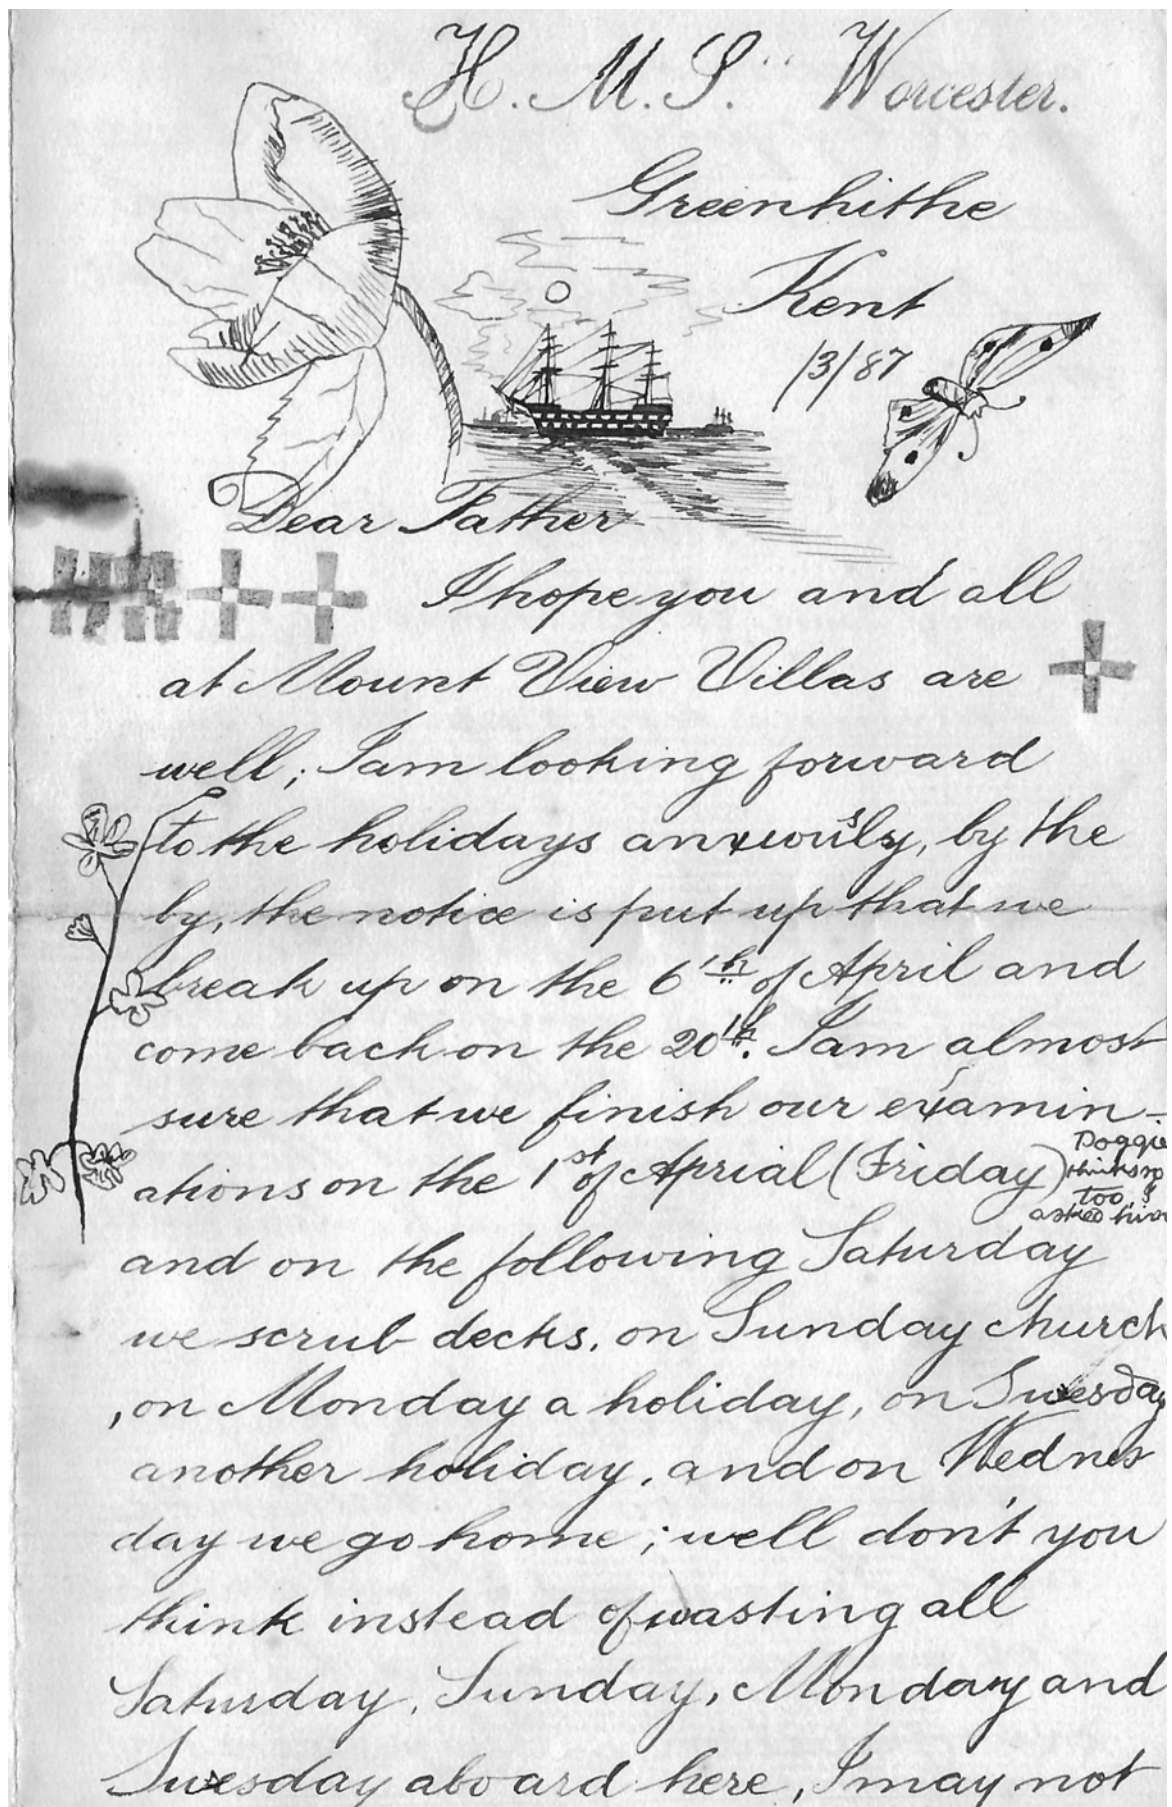 H. M. S. " Worcester.
Greenhithe
Kent
/3/87
Dear Father
I hope you and all
at Mount View Villas are
well; I am looking forward
to the holidays anxiously, by the
by, the notice is put up that we
break up on the 6th of April and
come back on the 20th. I am almost
sure that we finish our examin-
ations on the 1st of Aprial (Friday)
Doggie
thinks so
too, I
asked him
and on the following Saturday
we scrub decks, on Sunday church
, on Monday a holiday, on Tuesday
another holiday, and on Wednes
day we go home; well don't you
think instead of wasting all
Saturday, Sunday, Monday and
Tuesday aboard here, I may not